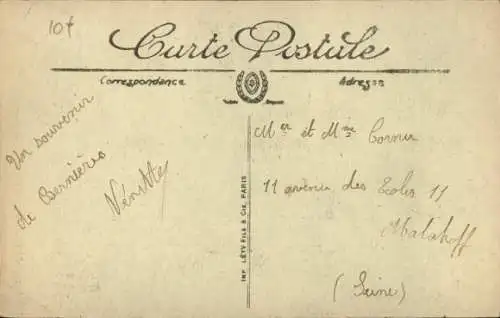 10f
Carte Postale
Correspondance
Adresse
Un souvenir
de Bernières
IMP. LÉVY FILS & CIE, PARIS
Mer et Mme
11 avenue des Ecoles 11
Malakoff
(Seine)